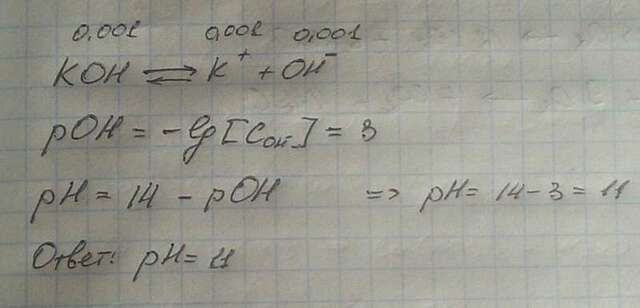 0,001 0,001 0,001
KOH ⇌ K⁺ + OH⁻
pOH = -lg[C_OH⁻] = 3
pH = 14 - pOH => pH = 14 - 3 = 11
Ответ: pH = 11